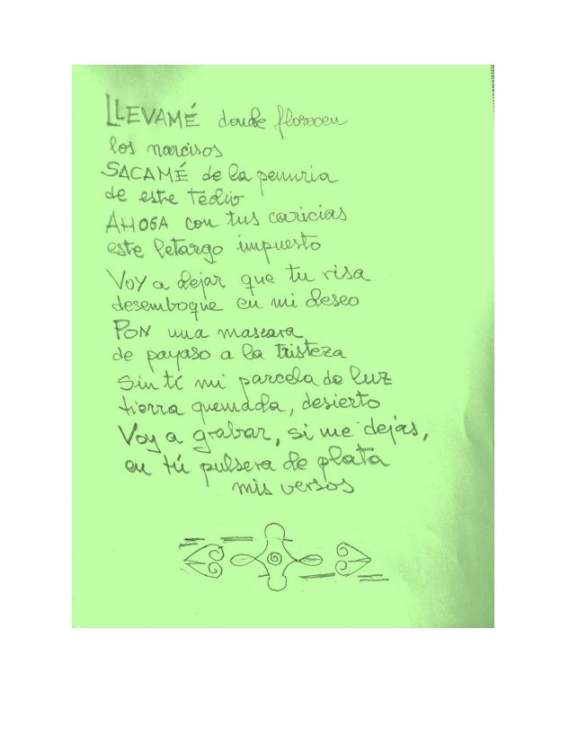 LLEVAMÉ donde florecen
los narcisos
SACAMÉ de la penuria
de este tedio
AHOGA con tus caricias
este letargo impuesto
VOY a dejar que tu risa
desemboque en mi deseo
PON una mascara
de payaso a la tristeza
Sin tí mi parcela de luz
tierra quemada, desierto
Voy a grabar, si me dejás,
en tú pulsera de plata
mis versos